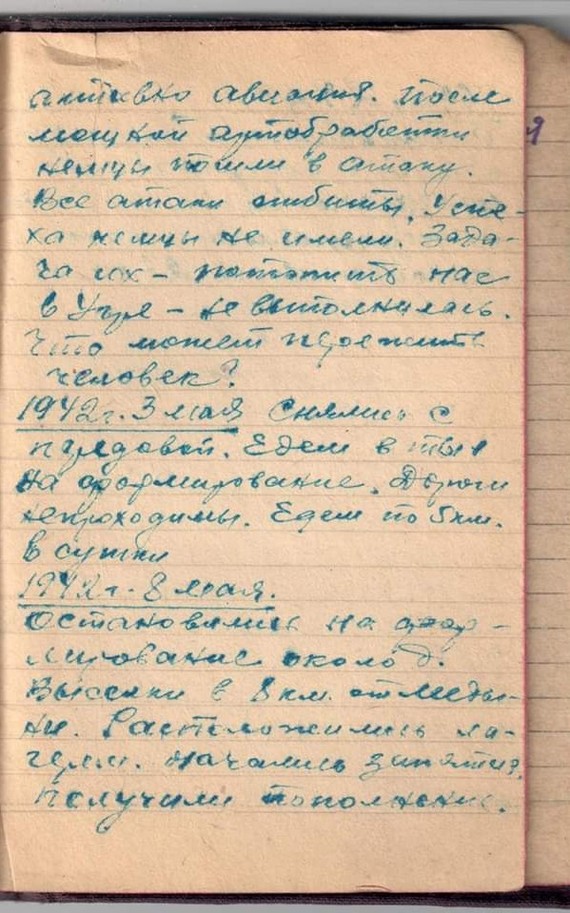 активно авиация. После
мощной артобработки
немцы пошли в атаку.
Все атаки отбиты. Успе-
ха немцы не имели. Зада-
ча их - потопить нас
в Угре - не выполнилась.
Что может пережить
человек?
1942г. 3 мая Снялись с
передовой. Едем в тыл
на формирование. Дороги
непроходимы. Едем по 5 км.
в сутки
1942 г. 8 мая.
Остановились на фор-
мирование около д.
в 8 км. от Меды-
ни. Расположились ла-
герем. Начались занятия.
Получили пополнение.
Я